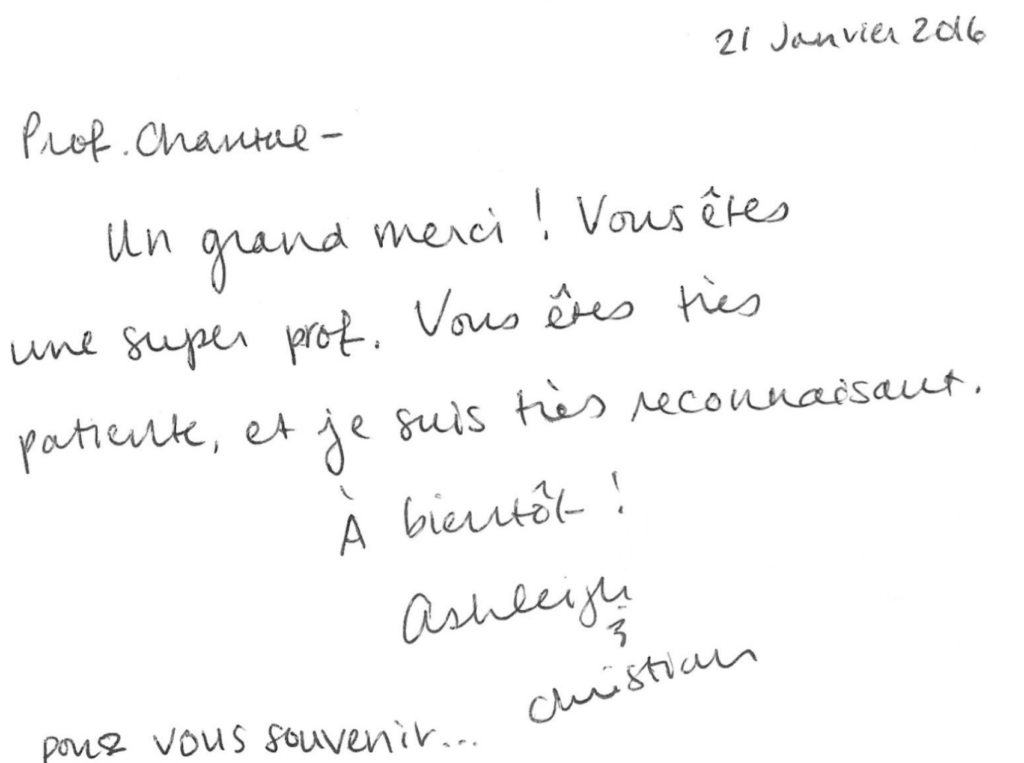 21 Janvier 2016
Prof. Chantal -
Un grand merci ! Vous êtes
une super prof. Vous êtes très
patiente, et je suis très reconnaisant.
À bientôt !
Ashleigh
&
Christian
pour vous souvenir...